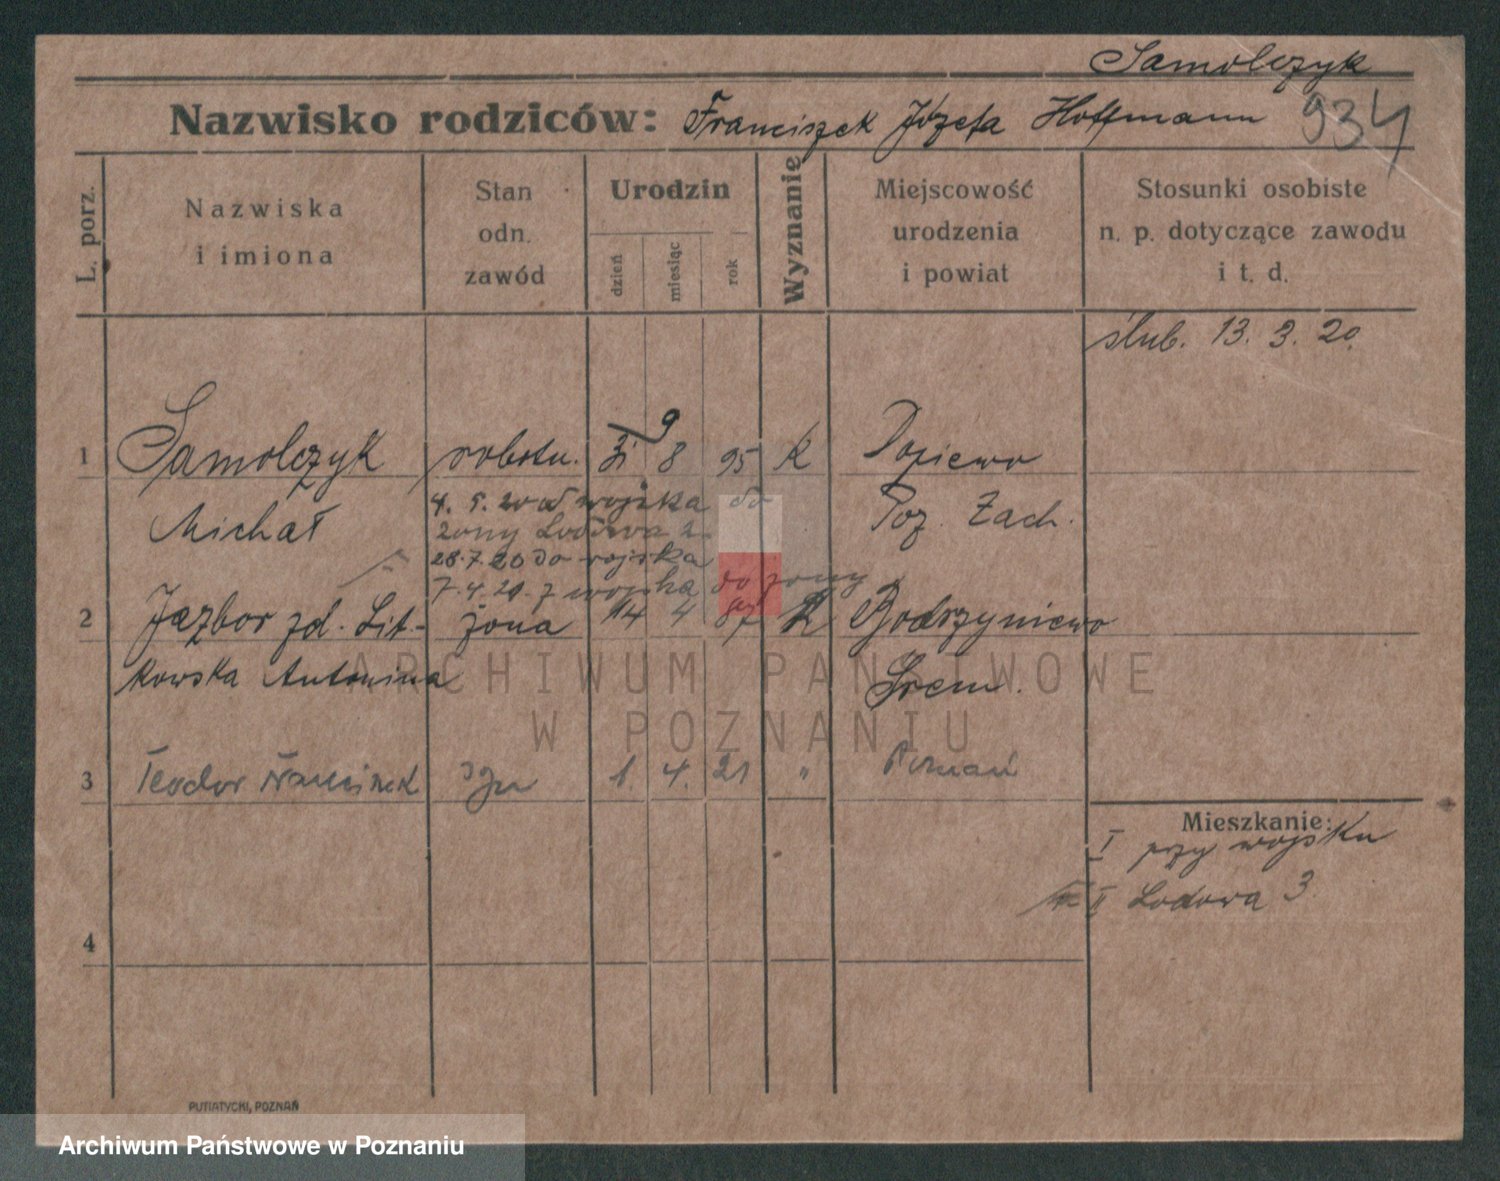 Samolczyk
Nazwisko rodziców: Franciszek Józefa Hoffmann 934
L. porz.
Nazwiska
i imiona
Stan
odn.
zawód
Urodzin
dzień
miesiąc
rok
Wyznanie
Miejscowość
urodzenia
i powiat
Stosunki osobiste
n. p. dotyczące zawodu
i t. d.
ślub. 13. 3. 20.
9
1 Samolczyk robotn. 31 8 95 k Dopiewo
Michał
Poz. Zach.
4. 5. 20 od wojska do
żony Lodowa
28.7.20 do wojska
7.4.20. z wojska do żony
2 Jazbor zd. Lit- żona 14 4 87 k Bodrzyniewo
kowska Antonina
Śrem.
3 Teodor Narcizek syn 1. 4. 21 " Poznań
Mieszkanie:
I przy wojsku
II Lodowa 3.
4
ARCHIWUM PAŃSTWOWE
W POZNANIU
PUTIATYCKI, POZNAŃ
Archiwum Państwowe w Poznaniu